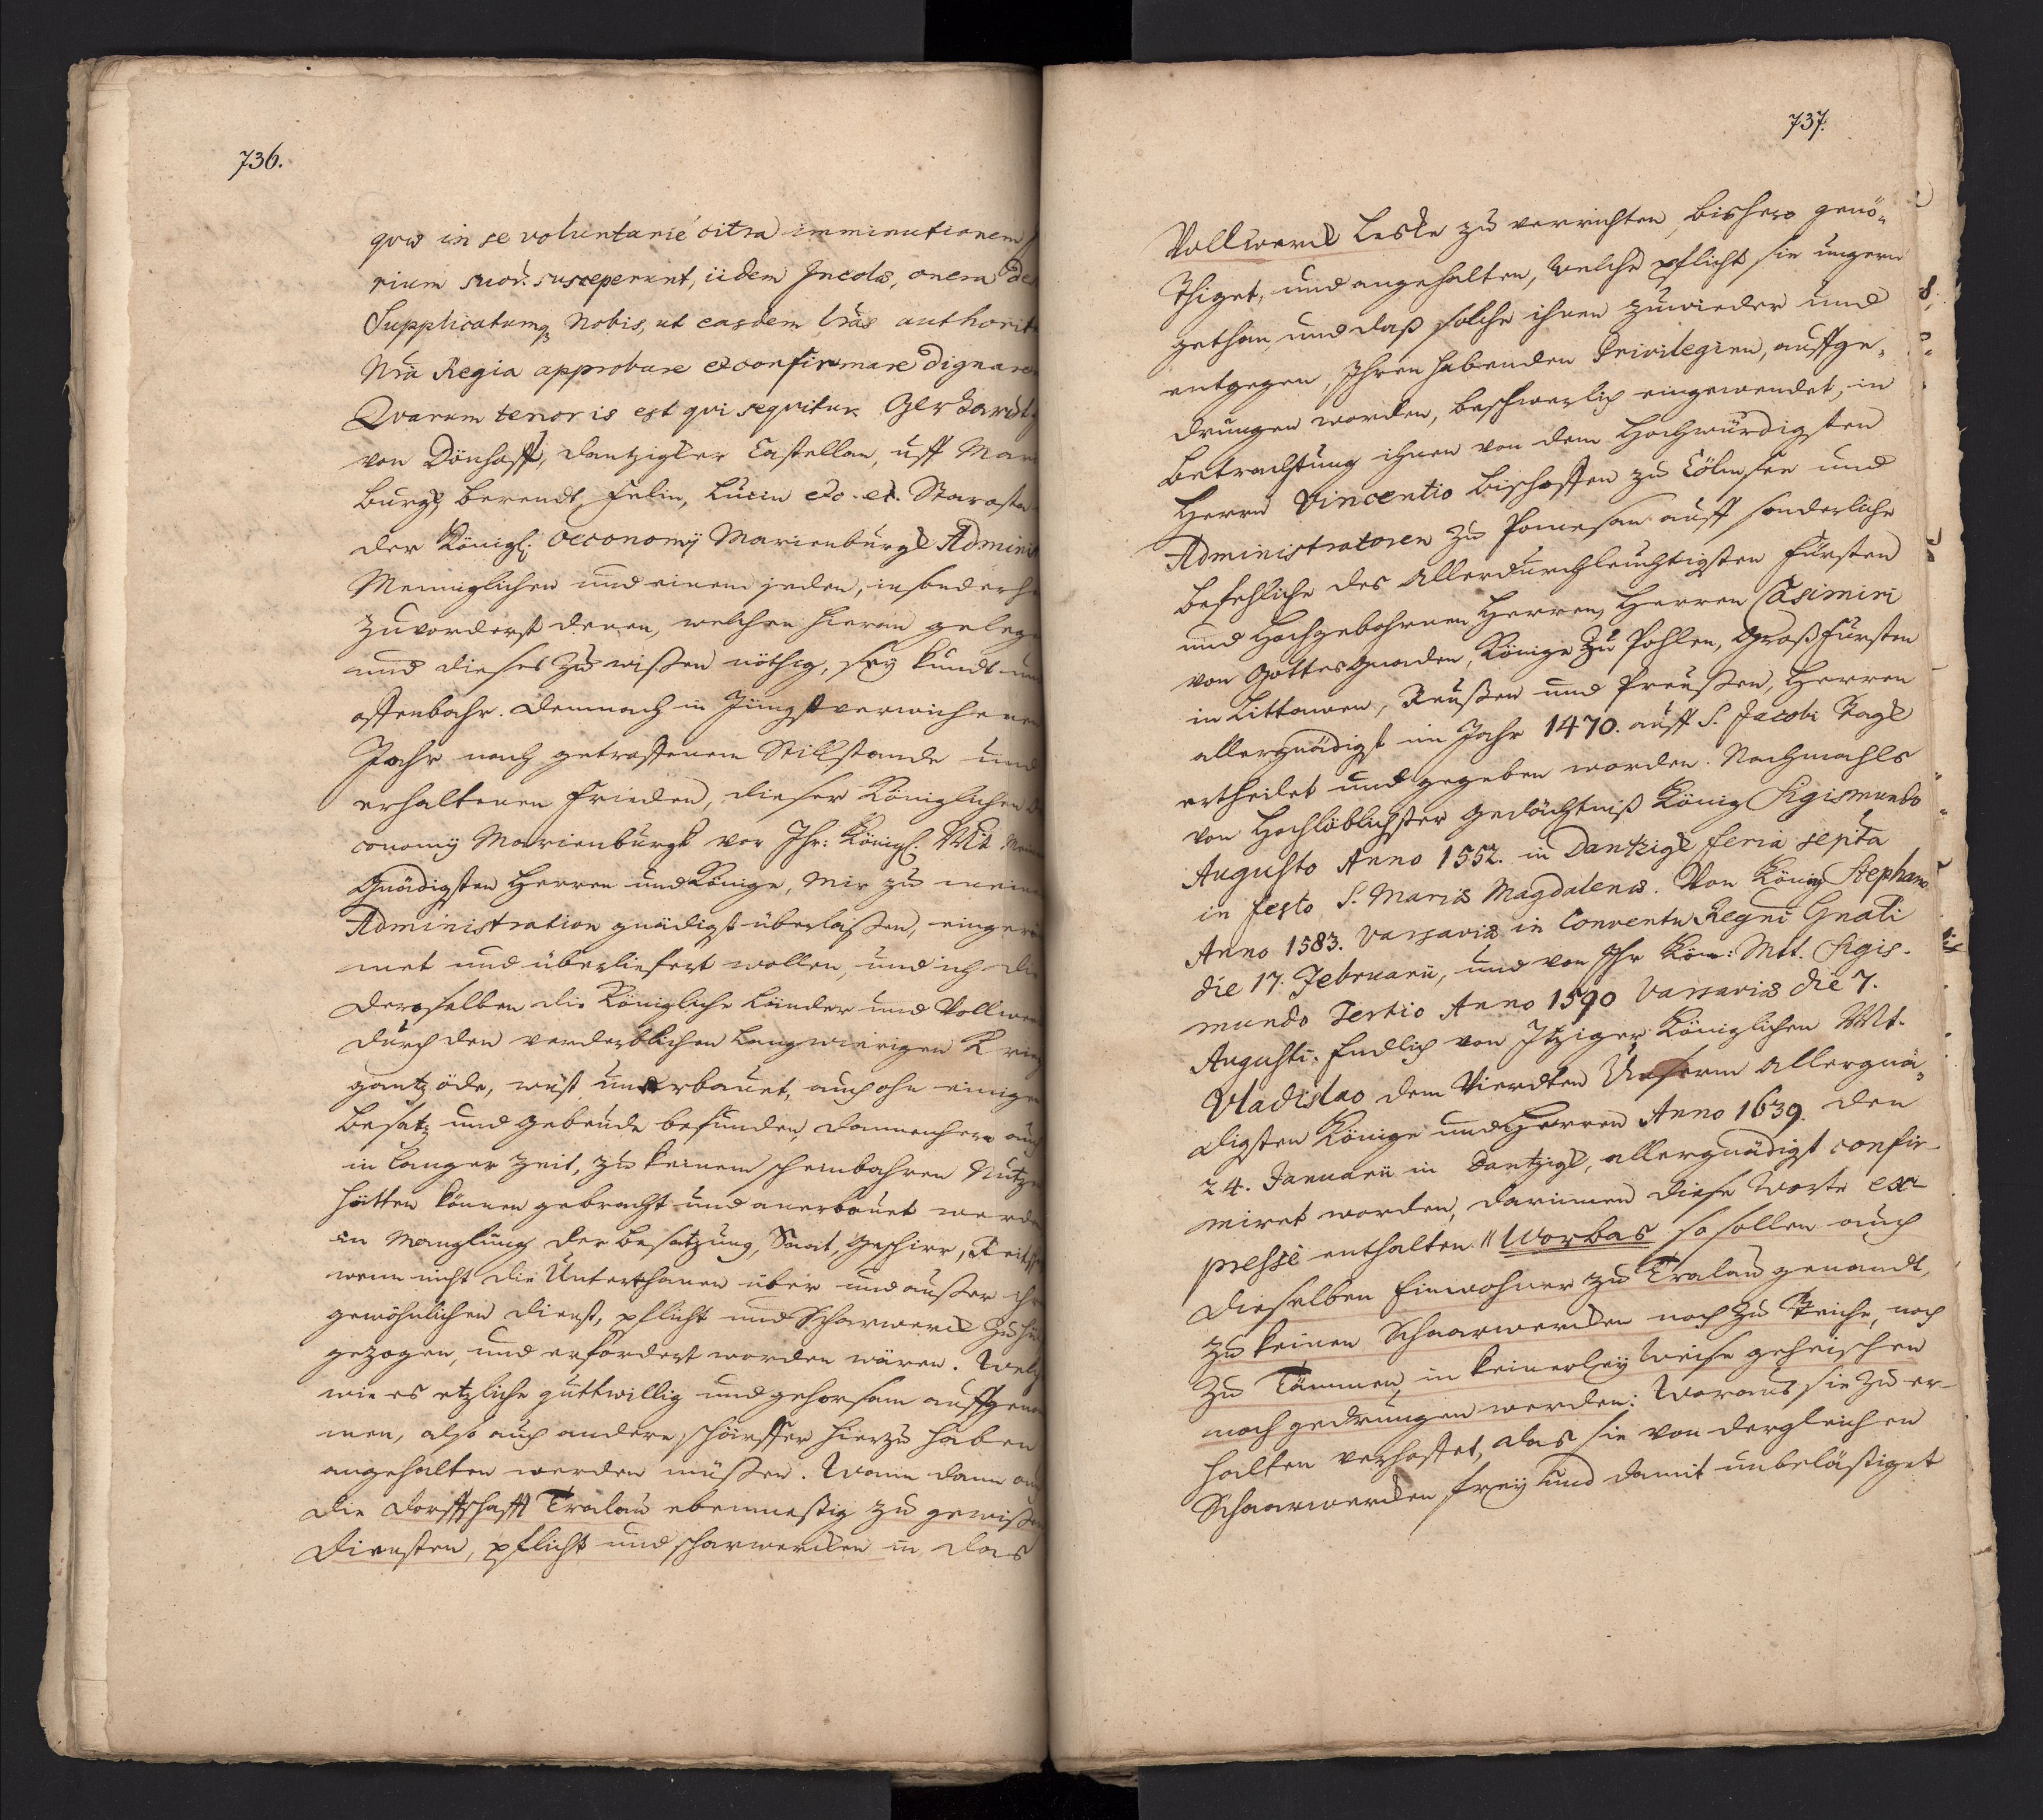 736.
qvo in se voluntarié citra imminutionem
rium suor. susceperunt, iidem Incolæ, onera de
Supplicatumq Nobis, ut easdem lras authorit
Nra Regia approbare et confirmare dignare
Qvarum tenor is est qvi seqvitur. Gerhardt
von Dönhoff, Dantzigker Castellan, uff Mari
burg, Berendt, Felin, Lucin etc. etc. Starosta
der Königl: Oeconomÿ Marienburgk Adminis
Menniglichen und einem jeden, insonderh
zuvorderst denen, welchen hieran geleg
und dieses zu wißen nöthig, seÿ kundt un
offenbahr. Demnach in Jüngstverwichenen
Jahr nach getroffenem Stillstande und
erhaltenen Frieden, dieser Königlichen
conomÿ Marienburgk von Ihr: Königl: Mtt. Mein
Gnädigsten Herren und Könige, mir zu mein
Administration gnädigst überlaßen, einger
met und überliefert wollen, und ich die
deroselben die Königliche Länder und Vollwer
durch den verderblichen langwierigen Krieg
gantz öde, wüst unerbauet, auch ohn einigen
Besatz und gebeude befunden, dannenhero auch
in langer Zeit, zu keinem scheinbahren Nutze
hätten können gebracht und anerbauet werde
in Manglung der Besatzung, Saat, Geschirr,
wenn nicht die Unterthanen über und außer ihr
gewöhnlichen Dienst, pflicht und Scharwerck zu
gezogen, und erfordert worden wären. Welch
wie es etzliche guttwillig und gehorsam auffgenom
men, also auch andere schärffer hierzu haben
angehalten werden müßen. Wann dann auch
die Dorffschafft Tralau ebenmeßig zu gewißen
Diensten, pflicht und scharwercken in das
737.
Vollwerck Leske zu verrichten, bishero genö-
thiget, und angehalten, welche pflicht sie ungern
gethan, und daß solche ihnen zuwieder und
entgegen, Ihren habenden Privilegien, auffge-
drungen worden, beschwerlich eingewendet, in
Betrachtung ihnen von dem Hochwürdigsten
Herrn Vincentio Bischoffen zu Cölmsee und
Administratoren zu Pomesan auff sonderliche
Befehliche des Allerdurchleuchtigsten Fürsten
und Hochgebohrnen Herren, Herren Casimiri
von Gottes Gnaden, Könige zu Pohlen, Groß Fürsten
in Littauen, Reußen und Preußen, Herren
allergnädigst im Jahr 1470. auff S. Jacobi Tagk
ertheilet und gegeben worden. Nachmahls
von Hochlöblichster Gedächtniß König Sigismundo
Augusto Anno 1552. in Dantzigk feria sexta
in festo S. Mariæ Magdalenæ. Von König Stephano
Anno 1583. Varsaviæ in Conventu Regni Gnali
die 17. Februarii, und von Ihr Kön: Mtt. Sigis-
mundo Tertio Anno 1590 Varsaviæ die 7.
Augusti. Endlich von Itziger Königlichen Mtt.
Vladislao dem Vierdten Unserm Allergnä-
digsten Könige und Herren Anno 1639. den
24. Januarii in Dantzigk, allergnädigst confir-
miret worden, darinnen diese Worte ex-
presse enthalten " Worbas so sollen auch
dieselben Einwohner zu Tralau genandt,
zu keinen Schaarwercken noch zu Teiche, noch
zu Tämmen, in keinerleÿ Weise geheischen
noch gedrungen werden: Woraus sie zu er-
halten verhoffet, das sie von dergleichen
Schaarwercken freÿ und damit unbelästiget